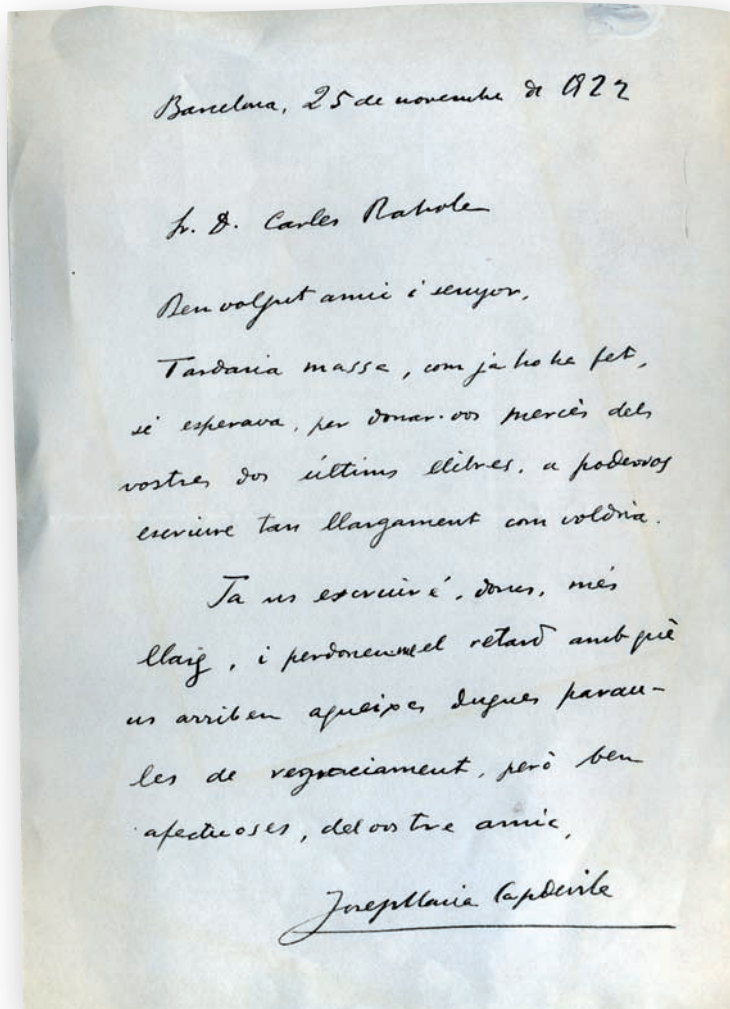 Barcelona, 25 de novembre de 1922
Sr. D. Carles Rahola
Benvolgut amic i senyor,
Tardaria massa, com ja ho he fet,
si esperava, per donar-vos mercès dels
vostres dos últims llibres, a poder-vos
escriure tan llargament com voldria.
Ja us escriuré, doncs, més
llarg, i perdoneu-me el retard amb què
us arriben aqueixes dugues parau-
les de regraciament, però ben
afectuoses, del vostre amic,
Josep Maria Capdevila